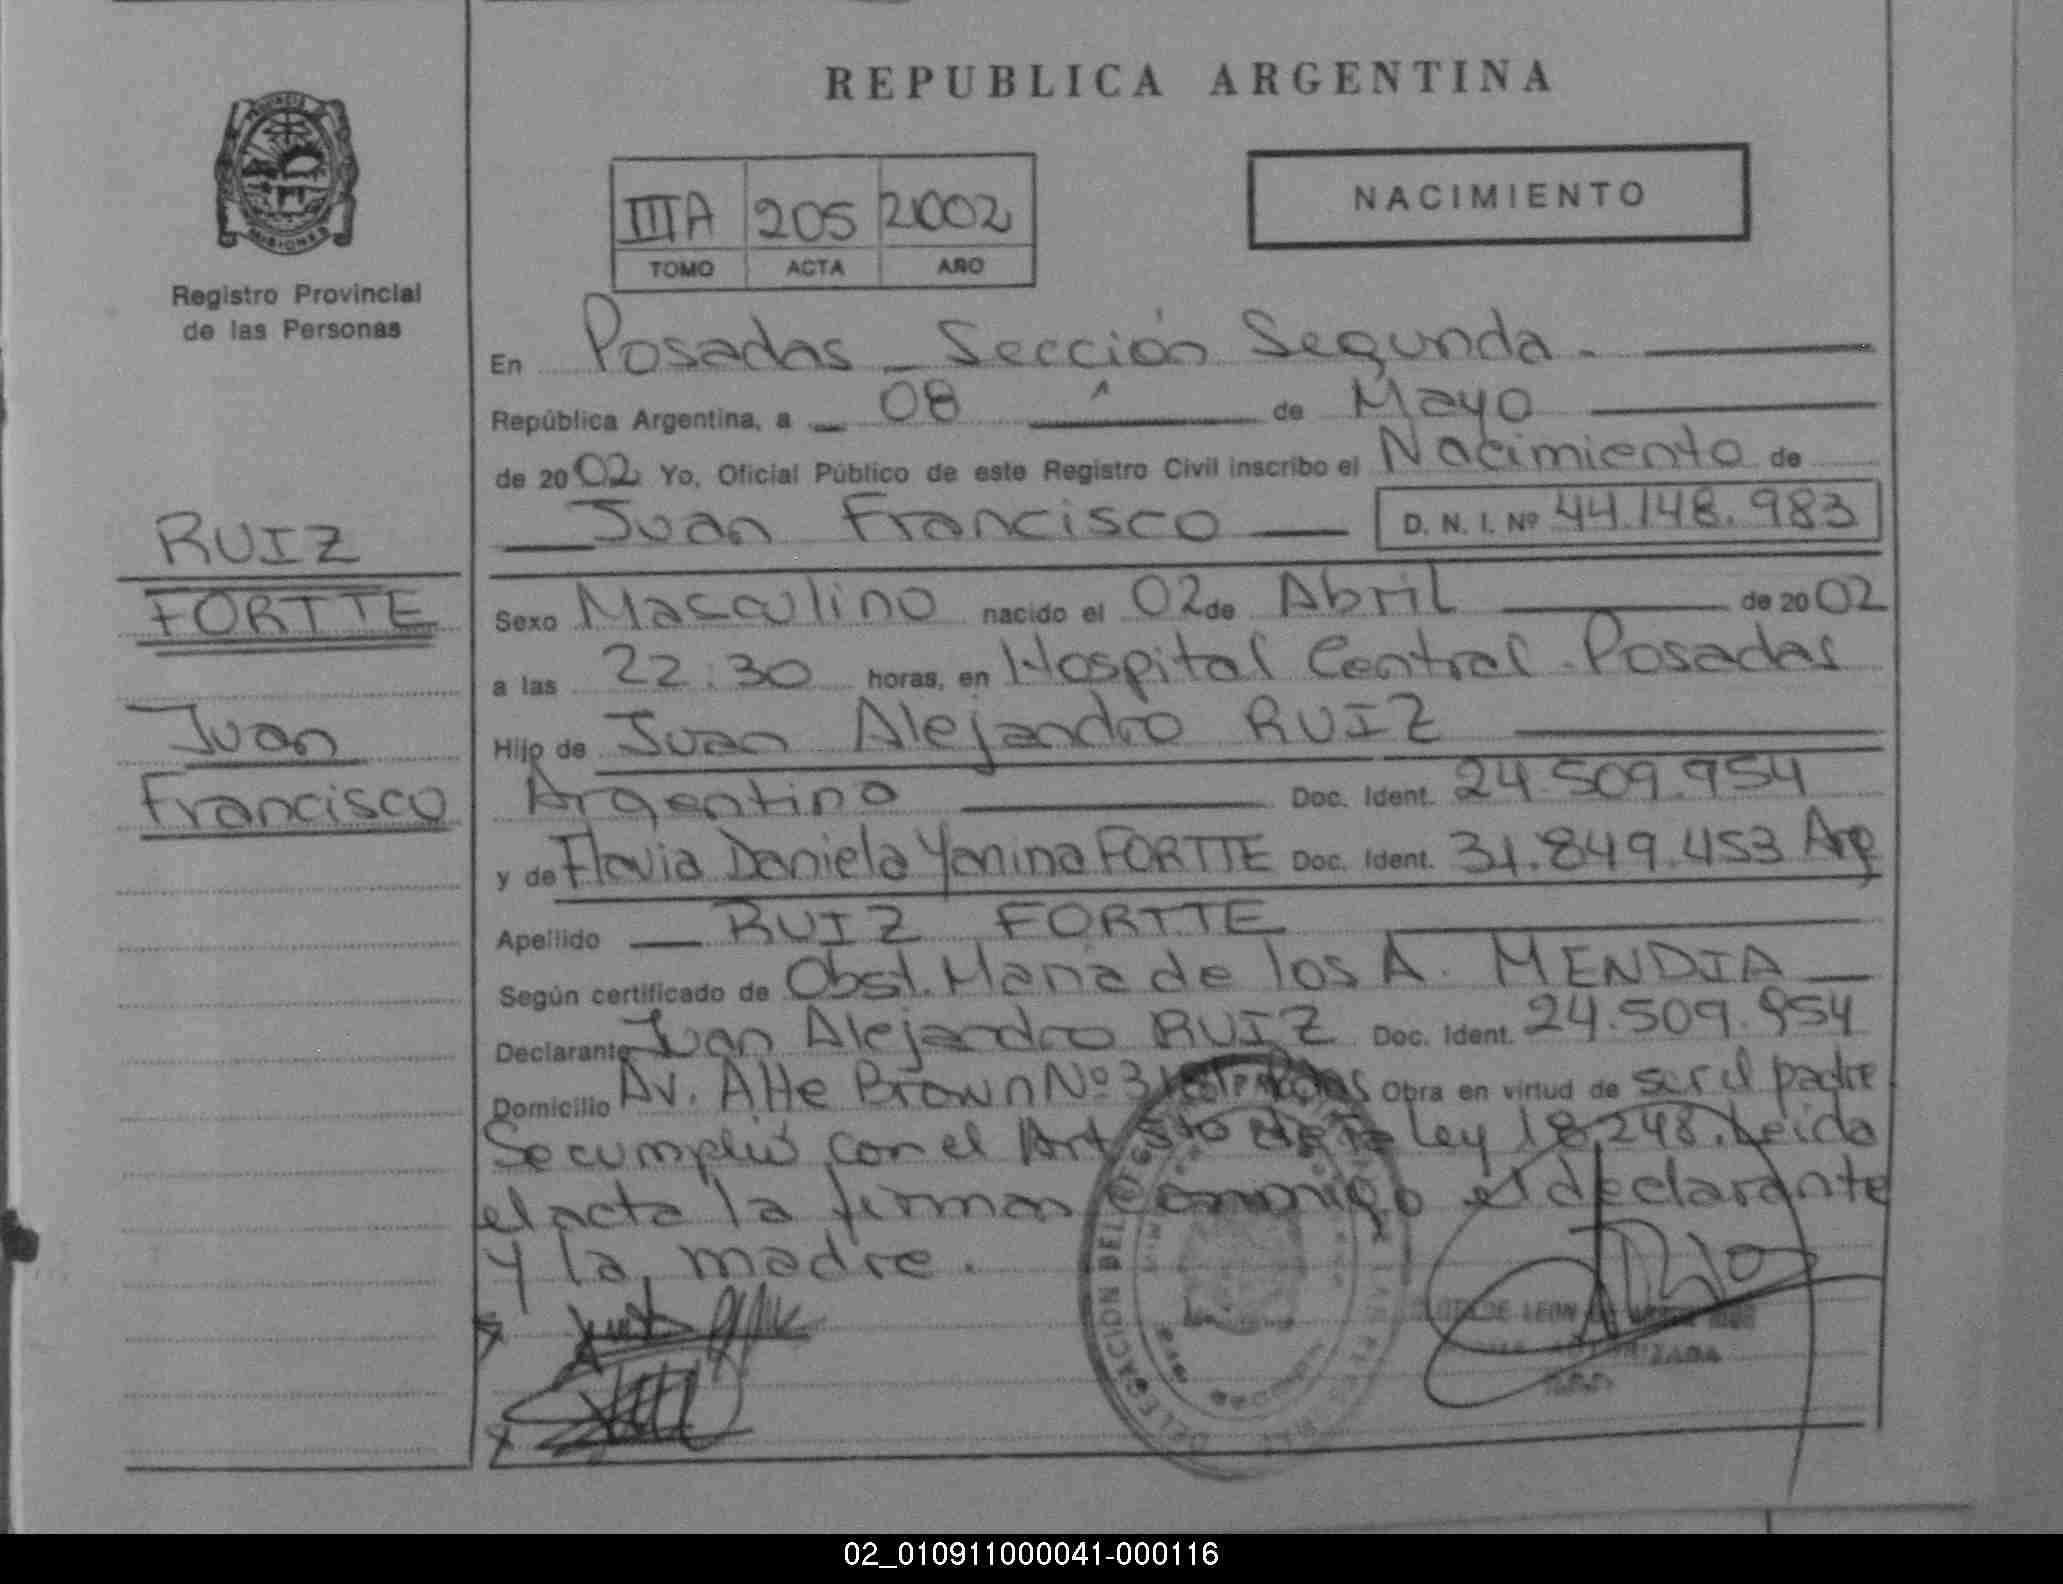 REPUBLICA ARGENTINA
NACIMIENTO
IIIA 205 2002
TOMO ACTA AÑO
MISIONES
Registro Provincial
de las Personas
En Posadas - Sección Segunda.-
República Argentina, a 08 de Mayo
de 2002 Yo, Oficial Público de este Registro Civil inscribo el Nacimiento de
Juan Francisco D. N. I. Nº 44.148.983
RUIZ
FORTTE
Juan
Francisco
Sexo Masculino nacido el 02 de Abril de 2002
a las 22:30 horas, en Hospital Central - Posadas
Hijo de Juan Alejandro RUIZ
Argentino Doc. Ident. 24.509.954
y de Flavia Daniela Yanina FORTTE Doc. Ident. 31.849.453 Arg
Apellido RUIZ FORTTE
Según certificado de Obst. Maria de los A. MENDIA
Declarante Juan Alejandro RUIZ Doc. Ident. 24.509.954
Domicilio Av. Alte Brown Nº Obra en virtud de ser el padre
Se cumplió con el Art 5to de la Ley 18.248. Leida
el acta la firman conmigo el declarante
y la madre.
DELEGACION DEL
AUTORIZADA
02_010911000041-000116